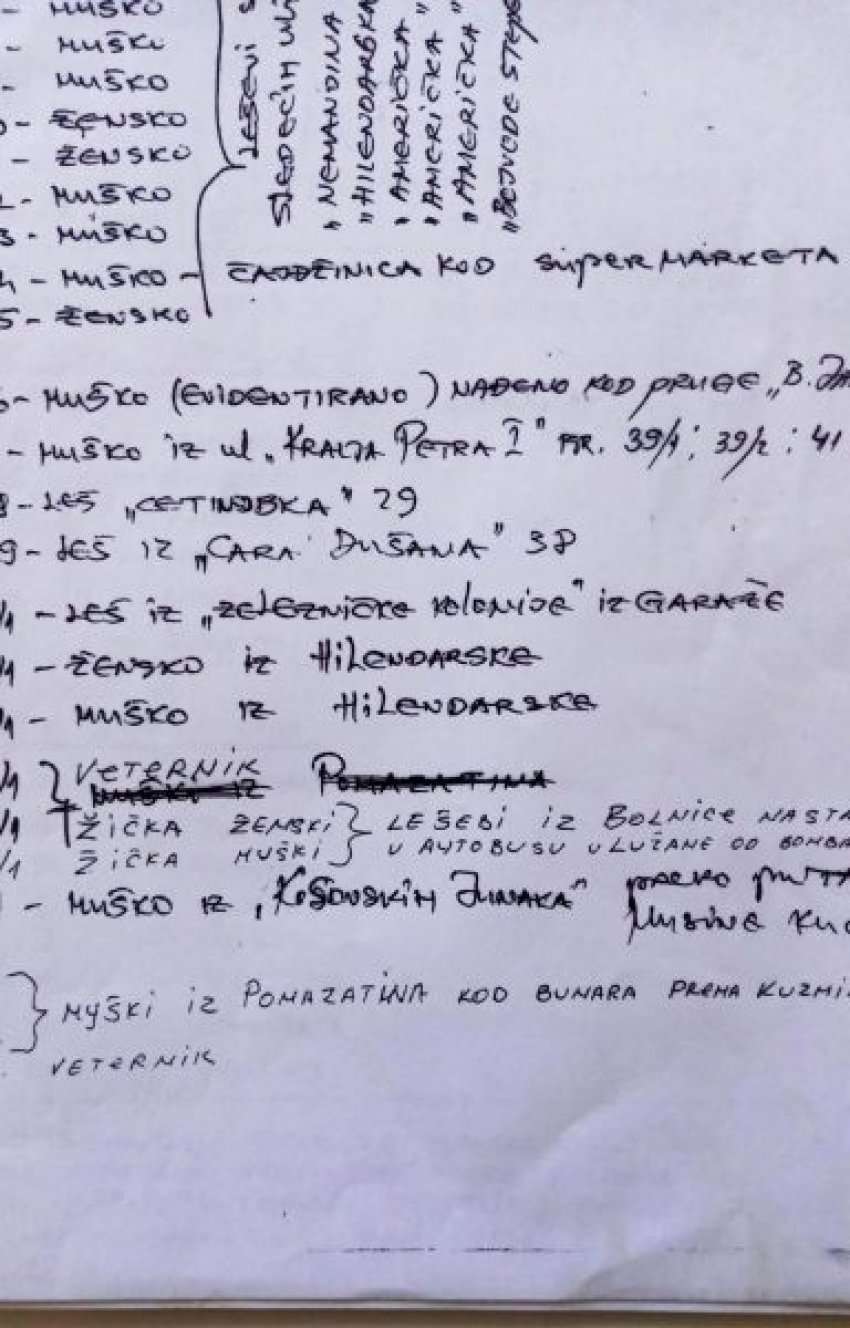 - MUŠKO
- MUŠKO
- MUŠKO
- ŽENSKO
- ŽENSKO
- MUŠKO
3 - MUŠKO
4 - MUŠKO - ČAJDŽINICA KOD SUPERMARKETA
5 - ŽENSKO
LEŠEVI
SLEDEĆIH
"NEMANJINA
"HILENDARSKA
"AMERIČKA"
"AMERIČKA"
"AMERIČKA"
"VOJVODE STEPE
- MUŠKO (EVIDENTIRANO) NAĐENO KOD PRUGE „B.
- MUŠKO IZ ul. „KRALJA PETRA I" BR. 39/1; 39/2; 41
8 - LEŠ „CETINJSKA" 29
9 - LEŠ IZ „CARA DUŠANA" 38
/1 - LEŠ iz „ŽELEZNIČKE KOLONIJE" iz GARAŽE
/1 - ŽENSKO iz HILENDARSKE
/1 - MUŠKO IZ HILENDARSKE
/1 VETERNIK
/1 ŽIČKA ŽENSKI LEŠEVI IZ BOLNICE
/1 ŽIČKA MUŠKI U AUTOBUSU
- MUŠKO IZ „KOSOVSKIH JUNAKA" PREKO
MUSINE
MUŠKI IZ POMAZATINA KOD BUNARA PREMA
VETERNIK